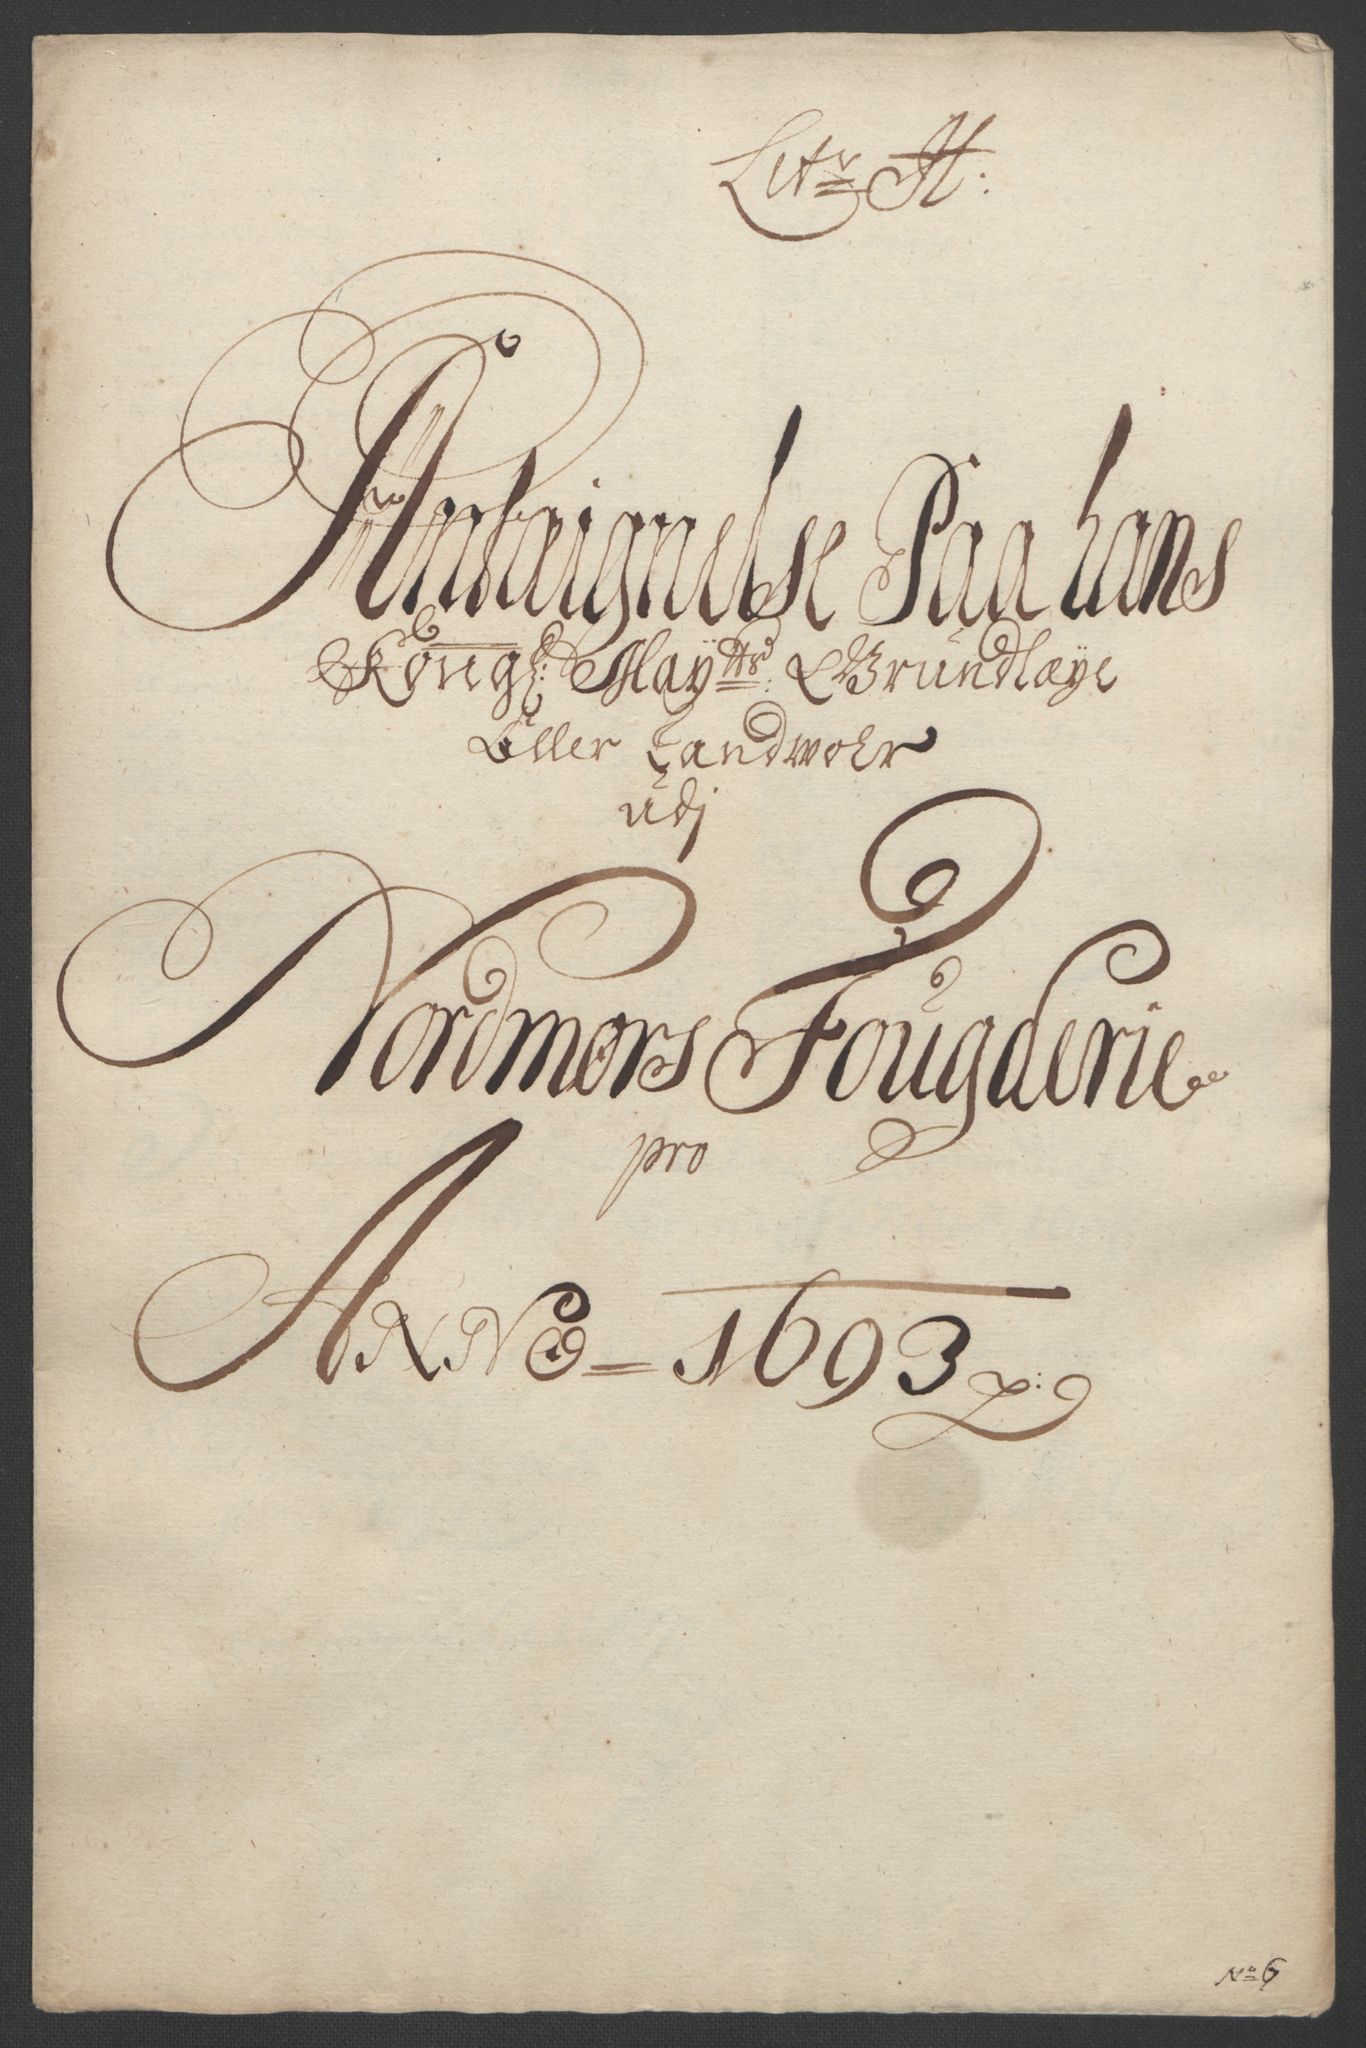 Litr A:
Anteignelse Paa hans
Kongl: Maÿtts: Grundlæÿe
Eller Landwohr
udj
Nordmørs Fougderie
pro
ANNO = 1693
No 6